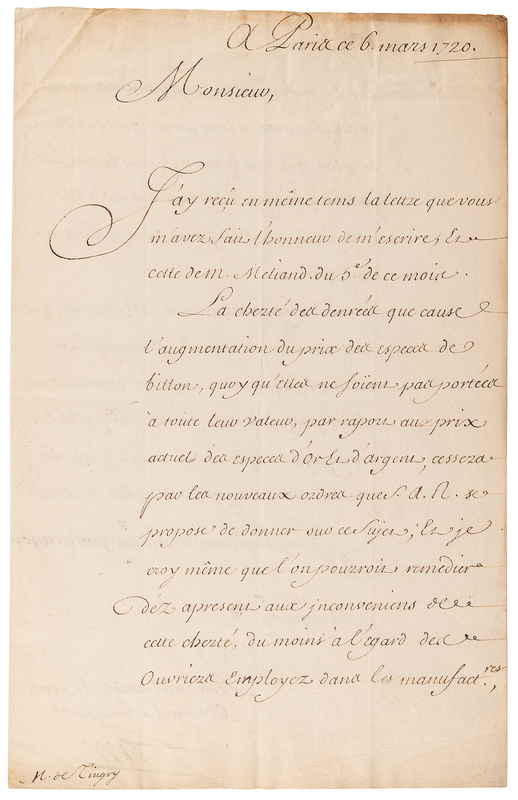 A Paris ce 6. mars 1720.
Monsieur,
J'ay reçu en même tems la lettre que vous
m'avez fait l'honneur de m'escrire, Et
celle de M. Meliand. du 5.e de ce mois.
La cherté des denrées que cause
l'augmentation du prix des especes de
billon, quoy qu'elles ne soient pas portées
à toute leur valeur, par raport au prix
actuel des especes d'Or Et d'argent, cessera
par les nouveaux ordres que S. A. R. se
propose de donner sur ce Sujet; Et je
croy même que l'on pourroit remedier
déz apresent aux jnconveniens de
cette cherté, du moins à l'égard des
Ouvriers Employez dans les manufact.res,
M. de Tingry